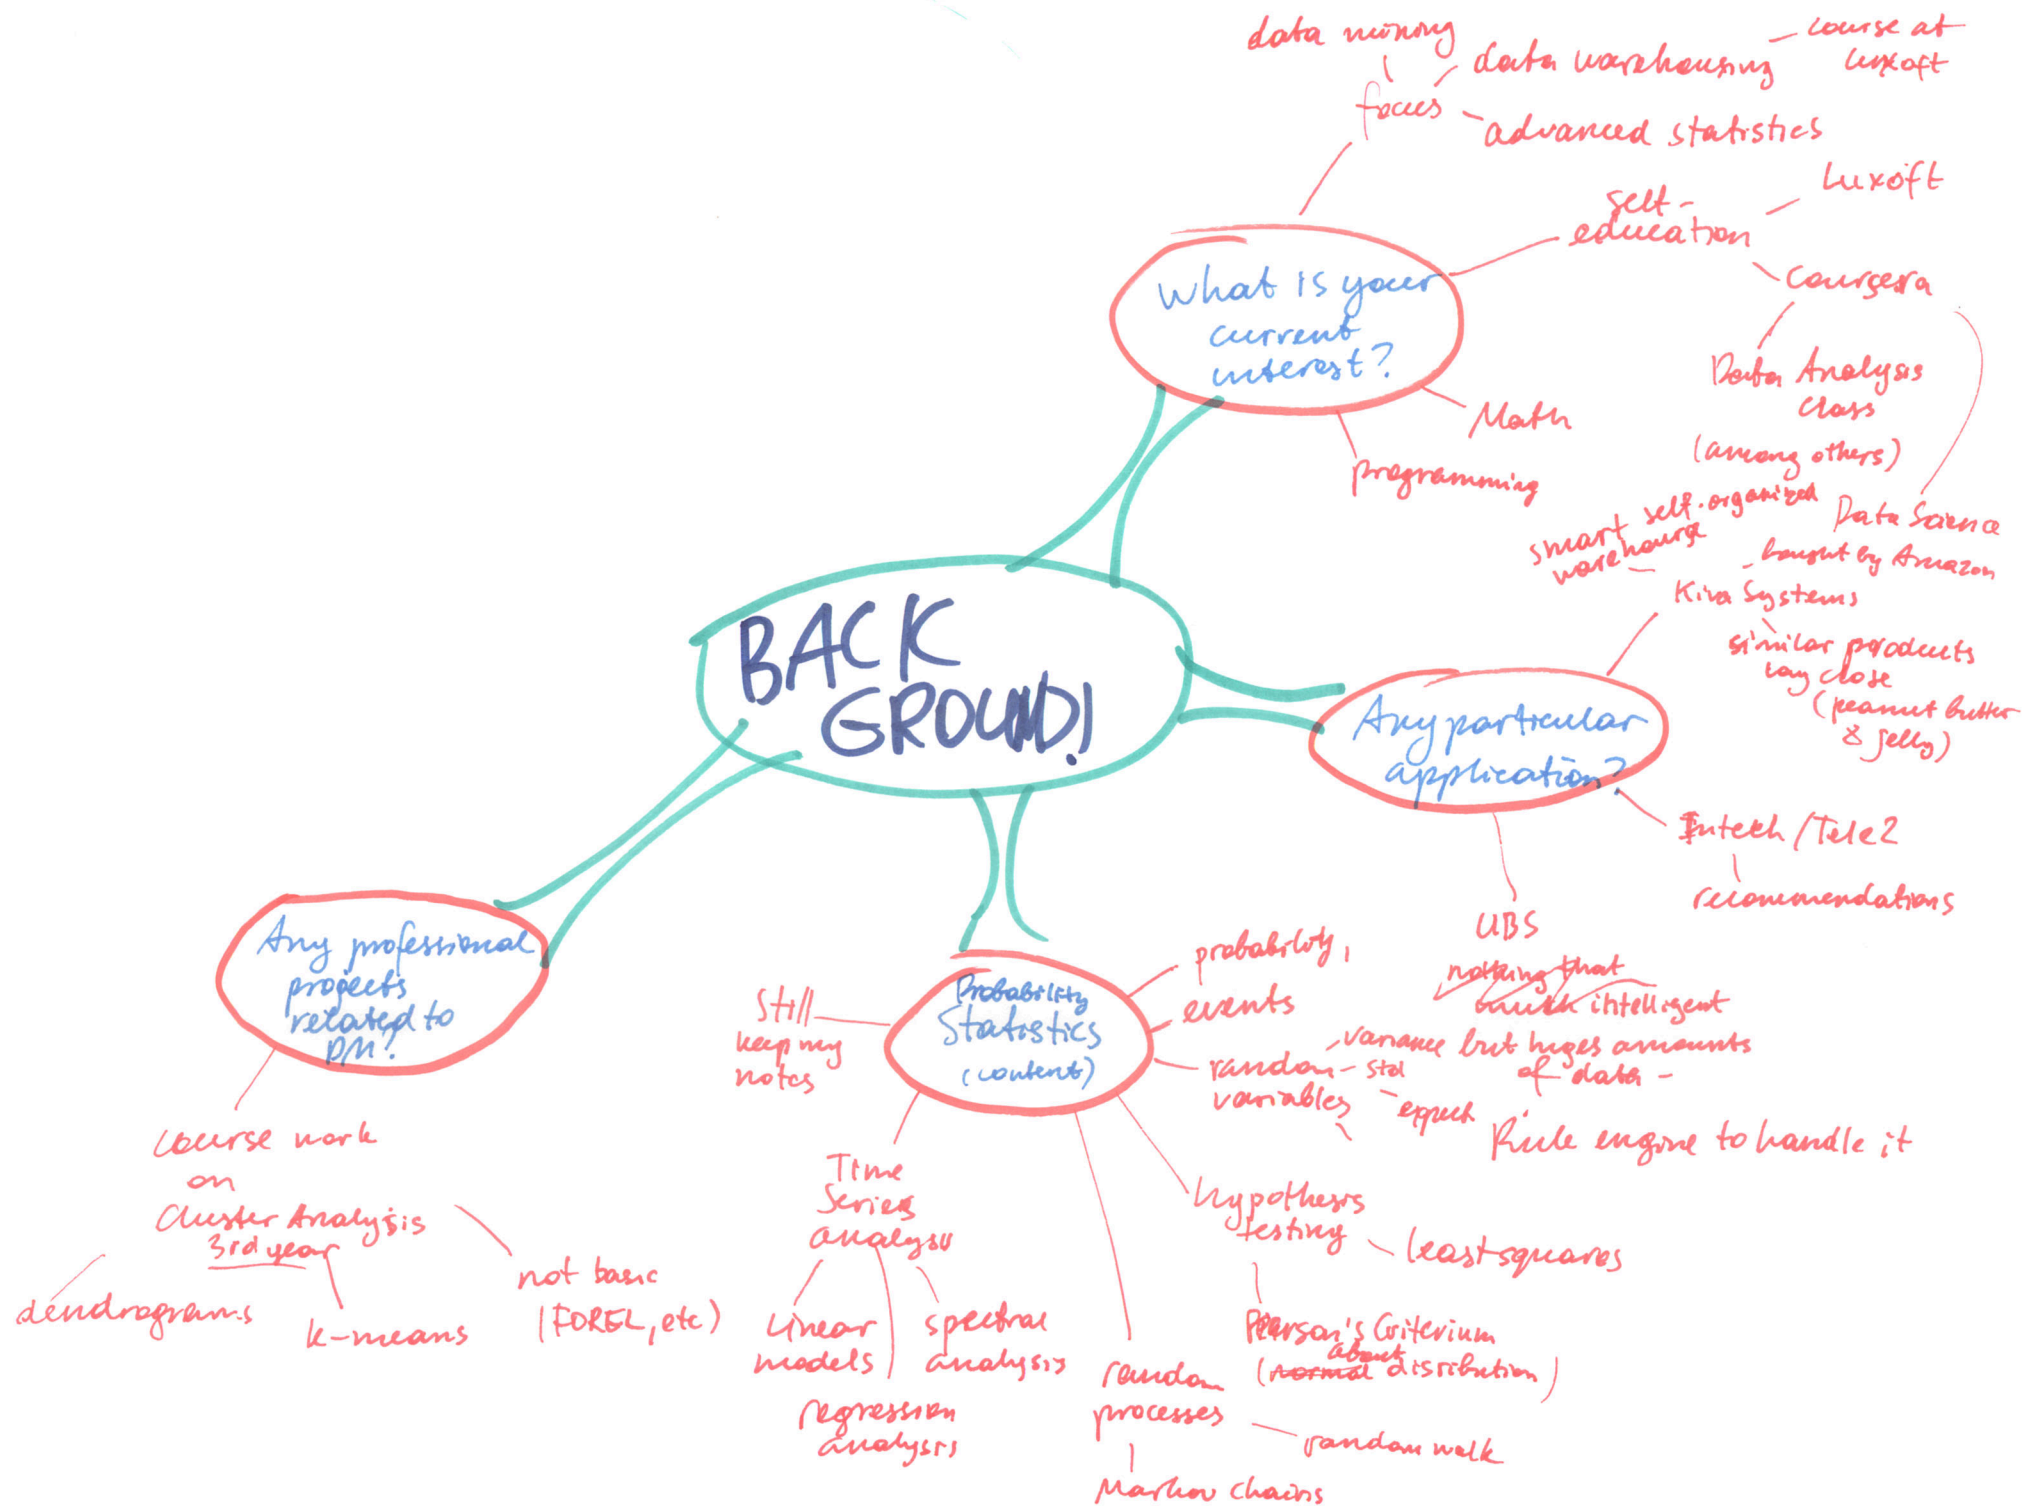 BACK
GROUND!
What is your
current
interest?
focus
data mining
data warehousing
course at
Luxoft
advanced statistics
self-
education
Luxoft
Coursera
Data Analysis
Class
(among others)
Data Science
Math
programming
Any particular
application?
Kiva Systems
smart self-organized
warehouse
bought by Amazon
similar products
lay close
(peanut butter
& jelly)
Intech / Tele2
recommendations
UBS
nothing that
much intelligent
but huges amounts
of data -
Rule engine to handle it
Probability
Statistics
(content)
probability,
events
random
variables
variance
std
expect
hypothesis
testing
least squares
Pearson's Criterium
(normal about disribution)
random
processes
random walk
Markov chains
Time
Series
analysis
linear
models
regression
analysis
spectral
analysis
Still
keep my
notes
Any professional
projects
related to
DM?
course work
on
Cluster Analysis
3rd year
dendrograms
k-means
not basic
(FOREL, etc)